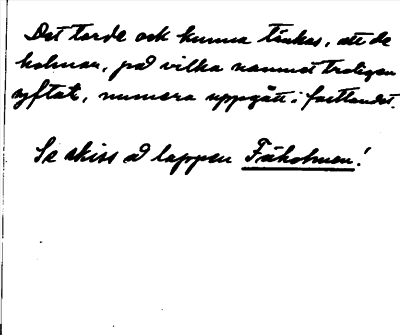 Det torde ock kunna tänkas, att de
holmar, på vilka namnet troligen
syftat, numera uppgått i fastlandet.
Se skiss å lappen Fäholmen!